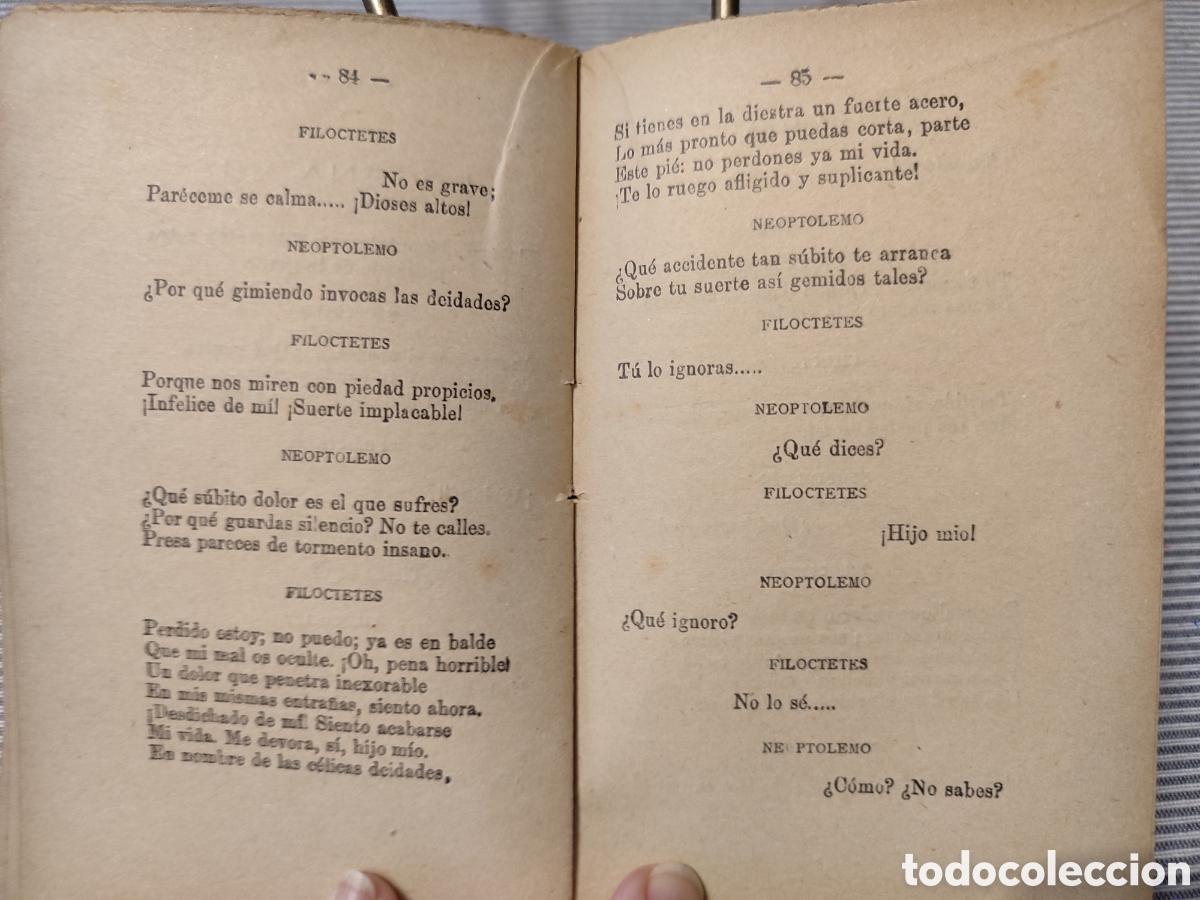 — 84 —
FILOCTETES
No es grave;
Paréceme se calma..... ¡Dioses altos!
NEOPTOLEMO
¿Por qué gimiendo invocas las deidades?
FILOCTETES
Porque nos miren con piedad propicios.
¡Infelice de mí! ¡Suerte implacable!
NEOPTOLEMO
¿Qué súbito dolor es el que sufres?
¿Por qué guardas silencio? No te calles.
Presa pareces de tormento insano.
FILOCTETES
Perdido estoy; no puedo; ya es en balde
Que mi mal os oculte. ¡Oh, pena horrible!
Un dolor que penetra inexorable
En mis mismas entrañas, siento ahora.
¡Desdichado de mí! Siento acabarse
Mi vida. Me devora, sí, hijo mío.
En nombre de las célicas deidades,
— 85 —
Si tienes en la diestra un fuerte acero,
Lo más pronto que puedas corta, parte
Este pié: no perdones ya mi vida.
¡Te lo ruego afligido y suplicante!
NEOPTOLEMO
¿Qué accidente tan súbito te arranca
Sobre tu suerte así gemidos tales?
FILOCTETES
Tú lo ignoras.....
NEOPTOLEMO
¿Qué dices?
FILOCTETES
¡Hijo mio!
NEOPTOLEMO
¿Qué ignoro?
FILOCTETES
No lo sé.....
NE PTOLEMO
¿Cómo? ¿No sabes?
todocoleccion